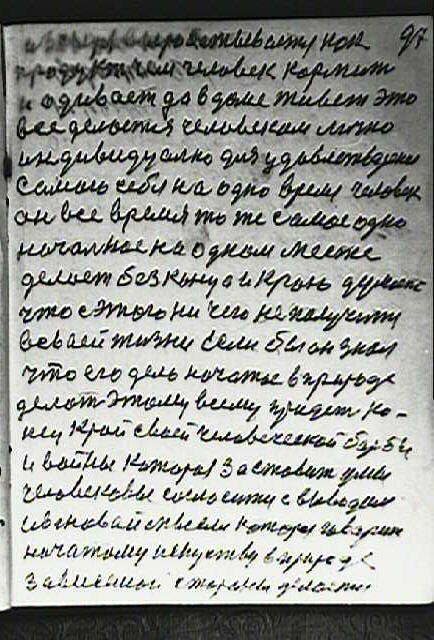 97
как
продукт чем человек кормит
и одивает да в доме живет это
все делается человекам лично
индивидуално для удовлетвдения
Самого себя на одно время человек
он все время то же самое одно
началное на одном месте
делает без конца и Краю думает
что с этого ни чего не получити
всваей жизни если бы он знал
что его дело начатое в природе
делат этому всему придет ко-
нец край своей человеческой борбы
и войны которая заставит умы
человековы согласитися с выводам
новай мысли которая гаварит
начатому искуству в природе
зависемой стараны делается